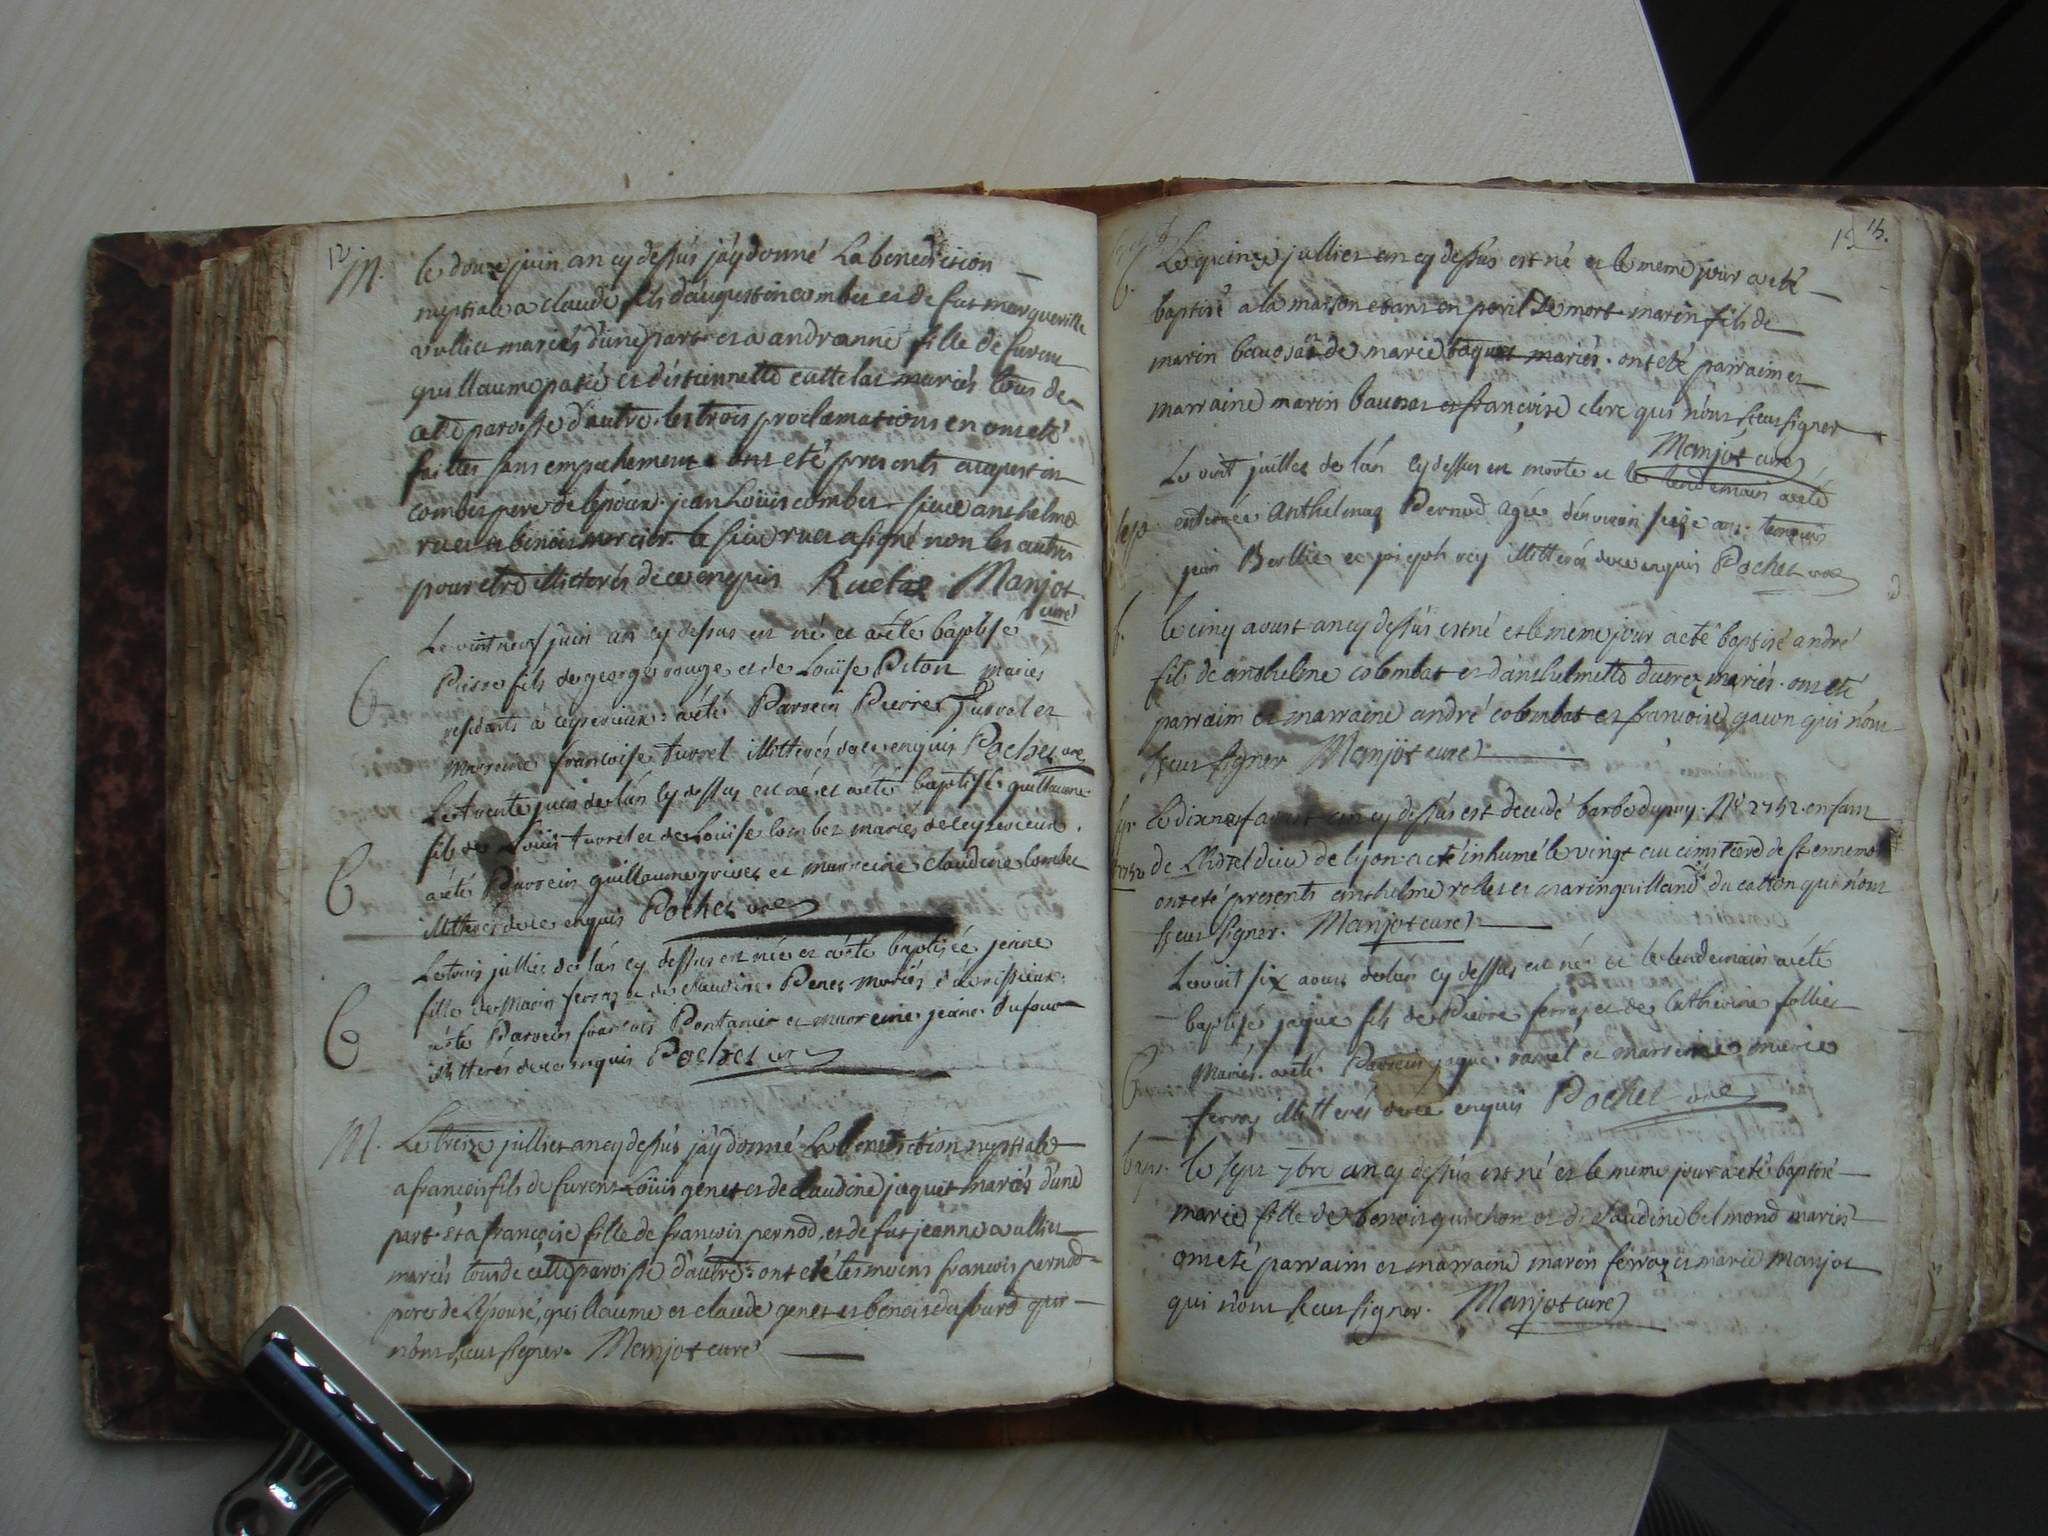 12
M. le douze juin an cy dessus j'ay donné La benediction
nuptiale a claude fils d'augustin combet et de fut marguerite
vullier mariés d'une part et a andreanne fille de furent
guillaume patié et d'estiennette cattelat mariés tous de
cette paroisse d'autre. les trois proclamations en ont eté
faittes sans empechement ont eté presents augustin
combet pere de l'epoux. jean Loüis combet sieur anthelme
ruet et benoit mercier. le sieur ruet a signé non les autres
pour etre illiterés de ce enquis Ruelat Manjot
curé
Le vint neuf juin an cy dessus est né et a été baptisé
B Pierre fils de george rouge et de Loüise Piton mariés
residants à ceyserieux. a été Parrein Pierre Turrel et
marreine francoise turrel illitterés de ce enquis Pochet vre
Le trente juin de l'an cy dessus est né et a été baptisé guillaume
fils de Loüis turrel et de Loüise combet mariés de ceyserieux.
B a été Parrein guillaume grivet et marreine claudine combet
illitterés de ce enquis Pochet vre
Le trois jullier de l'an cy dessus est née et a été baptisée jeanne
fille de Marin ferraz et de claudine Penet mariés
B a été Parrein francois Pontanier et marreine jeanne Dufour
illitterés de ce enquis Pochet vre
M. Le treize jullier an cy dessus j'ay donné La benediction nuptiale
a francois fils de furent Loüis genet et de claudine jaquet mariés d'une
part et a francoise fille de francois pernod, et de fut jeanne vullier
mariés tous de cette paroisse d'autre. ont eté temoins francois pernod
pere de L'epouse, guillaume et claude genet et benoit dufourd qui
n'ont sceu signer. Manjot curé
13.
Le quinze jullier an cy dessus est né et le meme jour a eté
baptisé a la maison etant en peril de mort marin fils de
marin baudsat de marie baquet mariés. ont eté parraim et
marraine marin baudsat et francoise clerc qui n'ont sceu signer
Manjot curé
Le vint juillet de l'an cy dessus est morte et le lendemain a été
sep. enterrée Anthelmaz Pernod agée d'environ seize ans. temoins
jean Berlie et joseph rey illitterés de ce enquis Pochet vre
b. le cinq aoust an cy dessus est né et le meme jour a eté baptisé andré
fils de anthelme colombat et d'anthelmette ducroz mariés. ont eté
parraim et marraine andré colombat et francoise gacon qui n'ont
sceu signer Manjot curé
le dixneuf aoust an cy dessus est decedé barbe dupuy. N° 2752. enfant
2752 de L'hotel dieu de lyon. a eté inhumé le vingt au cimitiere de st ennemon
ont eté presents anthelme rollet et marin guilland du catton qui n'ont
sceu signer. Manjot curé
Le vint six aout de l'an cy dessus est né et le lendemain a été
baptisé jaque fils de Pierre ferraz et de Catherine follier
B Mariés. a été Parrein jaque ramel et marreine marie
ferraz illitterés de ce enquis Pochet vre
bapt. le sept 7bre an cy dessus est né et le meme jour a eté baptisé
marie fille de benoit guichon et de claudine belmond mariés
ont eté parraim et marraine marin ferraz et marie Manjot
qui n'ont sceu signer. Manjot curé